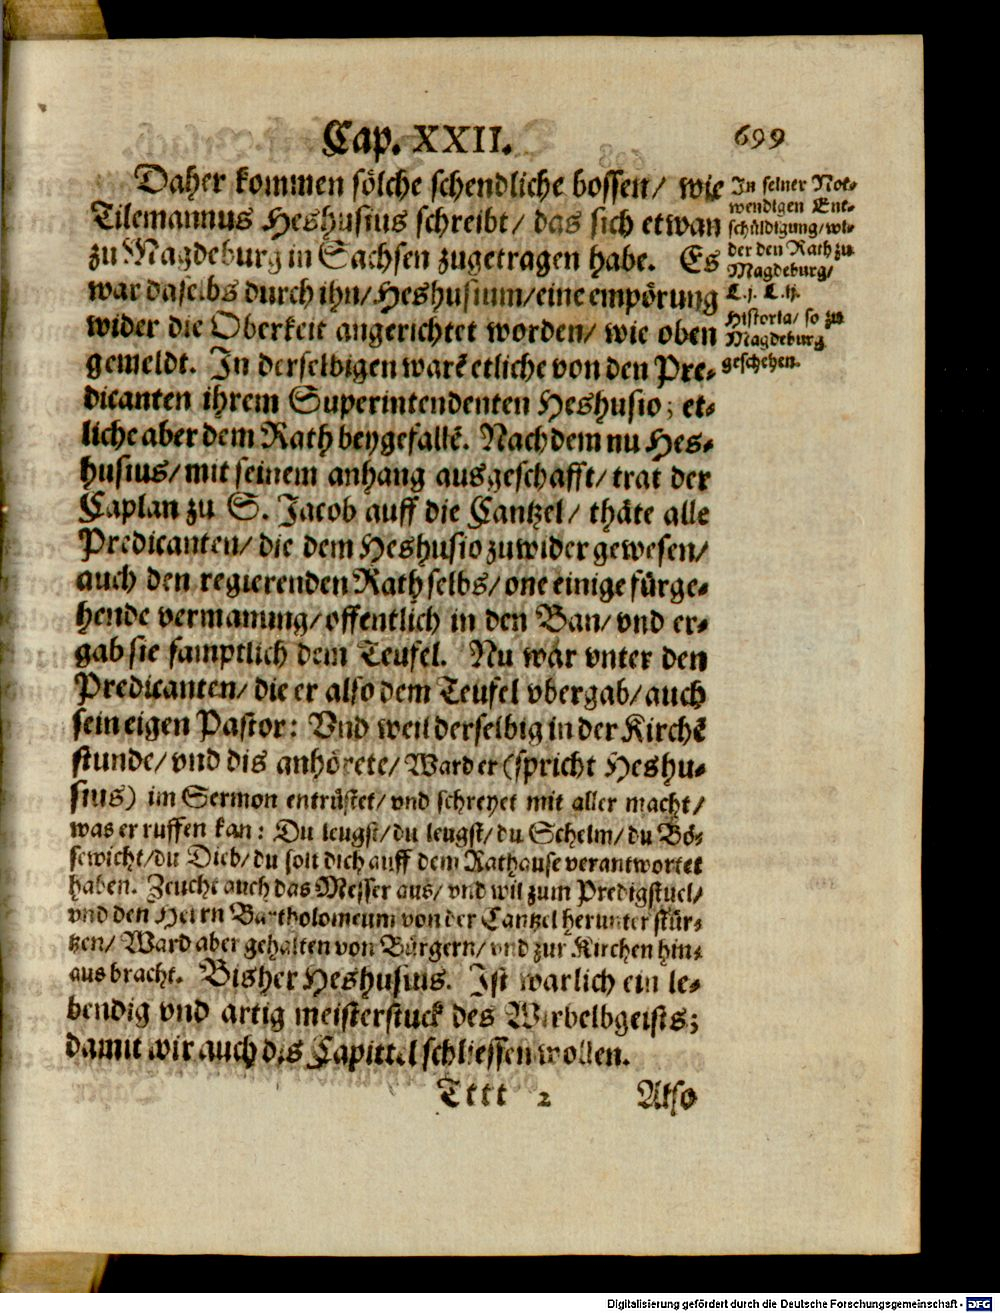 Cap. XXII.
699
Daher kommen sölche schendliche bossen/ wie
Tilemannus Heshusius schreibt/ das sich etwan
zu Magdeburg in Sachsen zugetragen habe. Es
war daselbs durch ihn/ Heshusium/ eine empörung
wider die Oberkeit angerichtet worden/ wie oben
gemeldt. In derselbigen warẽ etliche von den Pre-
dicanten ihrem Superintendenten Heshusio; et-
liche aber dem Rath beygefallẽ. Nach dem nu Hes-
husius/ mit seinem anhang ausgeschafft/ trat der
Caplan zu S. Jacob auff die Cantzel/ thäte alle
Predicanten/ die dem Heshusio zuwider gewesen/
auch den regierenden Rath selbs/ one einige fürge-
hende vermanung/ offentlich in den Ban/ vnd er-
gab sie samptlich dem Teufel. Nu war vnter den
Predicanten/ die er also dem Teufel vbergab/ auch
sein eigen Pastor: Vnd weil derselbig in der Kirchẽ
stunde/ vnd dis anhörete/ Ward er (spricht Heshu-
sius) im Sermon entrüstet/ vnd schreyet mit aller macht/
was er ruffen kan: Du leugst/ du leugst/ du Schelm/ du Bö-
sewicht/ du Dieb/ du solt dich auff dem Rathause verantwortet
haben. Zeucht auch das Messer aus/ vnd wil zum Predigstuel/
vnd den Herrn Bartholomeum von der Cantzel herunter stür-
tzen/ Ward aber gehalten von Bürgern/ vnd zur Kirchen hin-
aus bracht. Bisher Heshusius. Ist warlich ein le-
bendig vnd artig meisterstuck des Wirbelgeists;
damit wir auch das Capittel schliessen wollen.
Tttt 2
Also
In seiner Not-
wendigen Ent-
schüldigung/ wi-
der den Rath zu
Magdeburg/
C. j. C. ij.
Historia/ so zu
Magdeburg
geschehen.
Digitalisierung gefördert durch die Deutsche Forschungsgemeinschaft - DFG